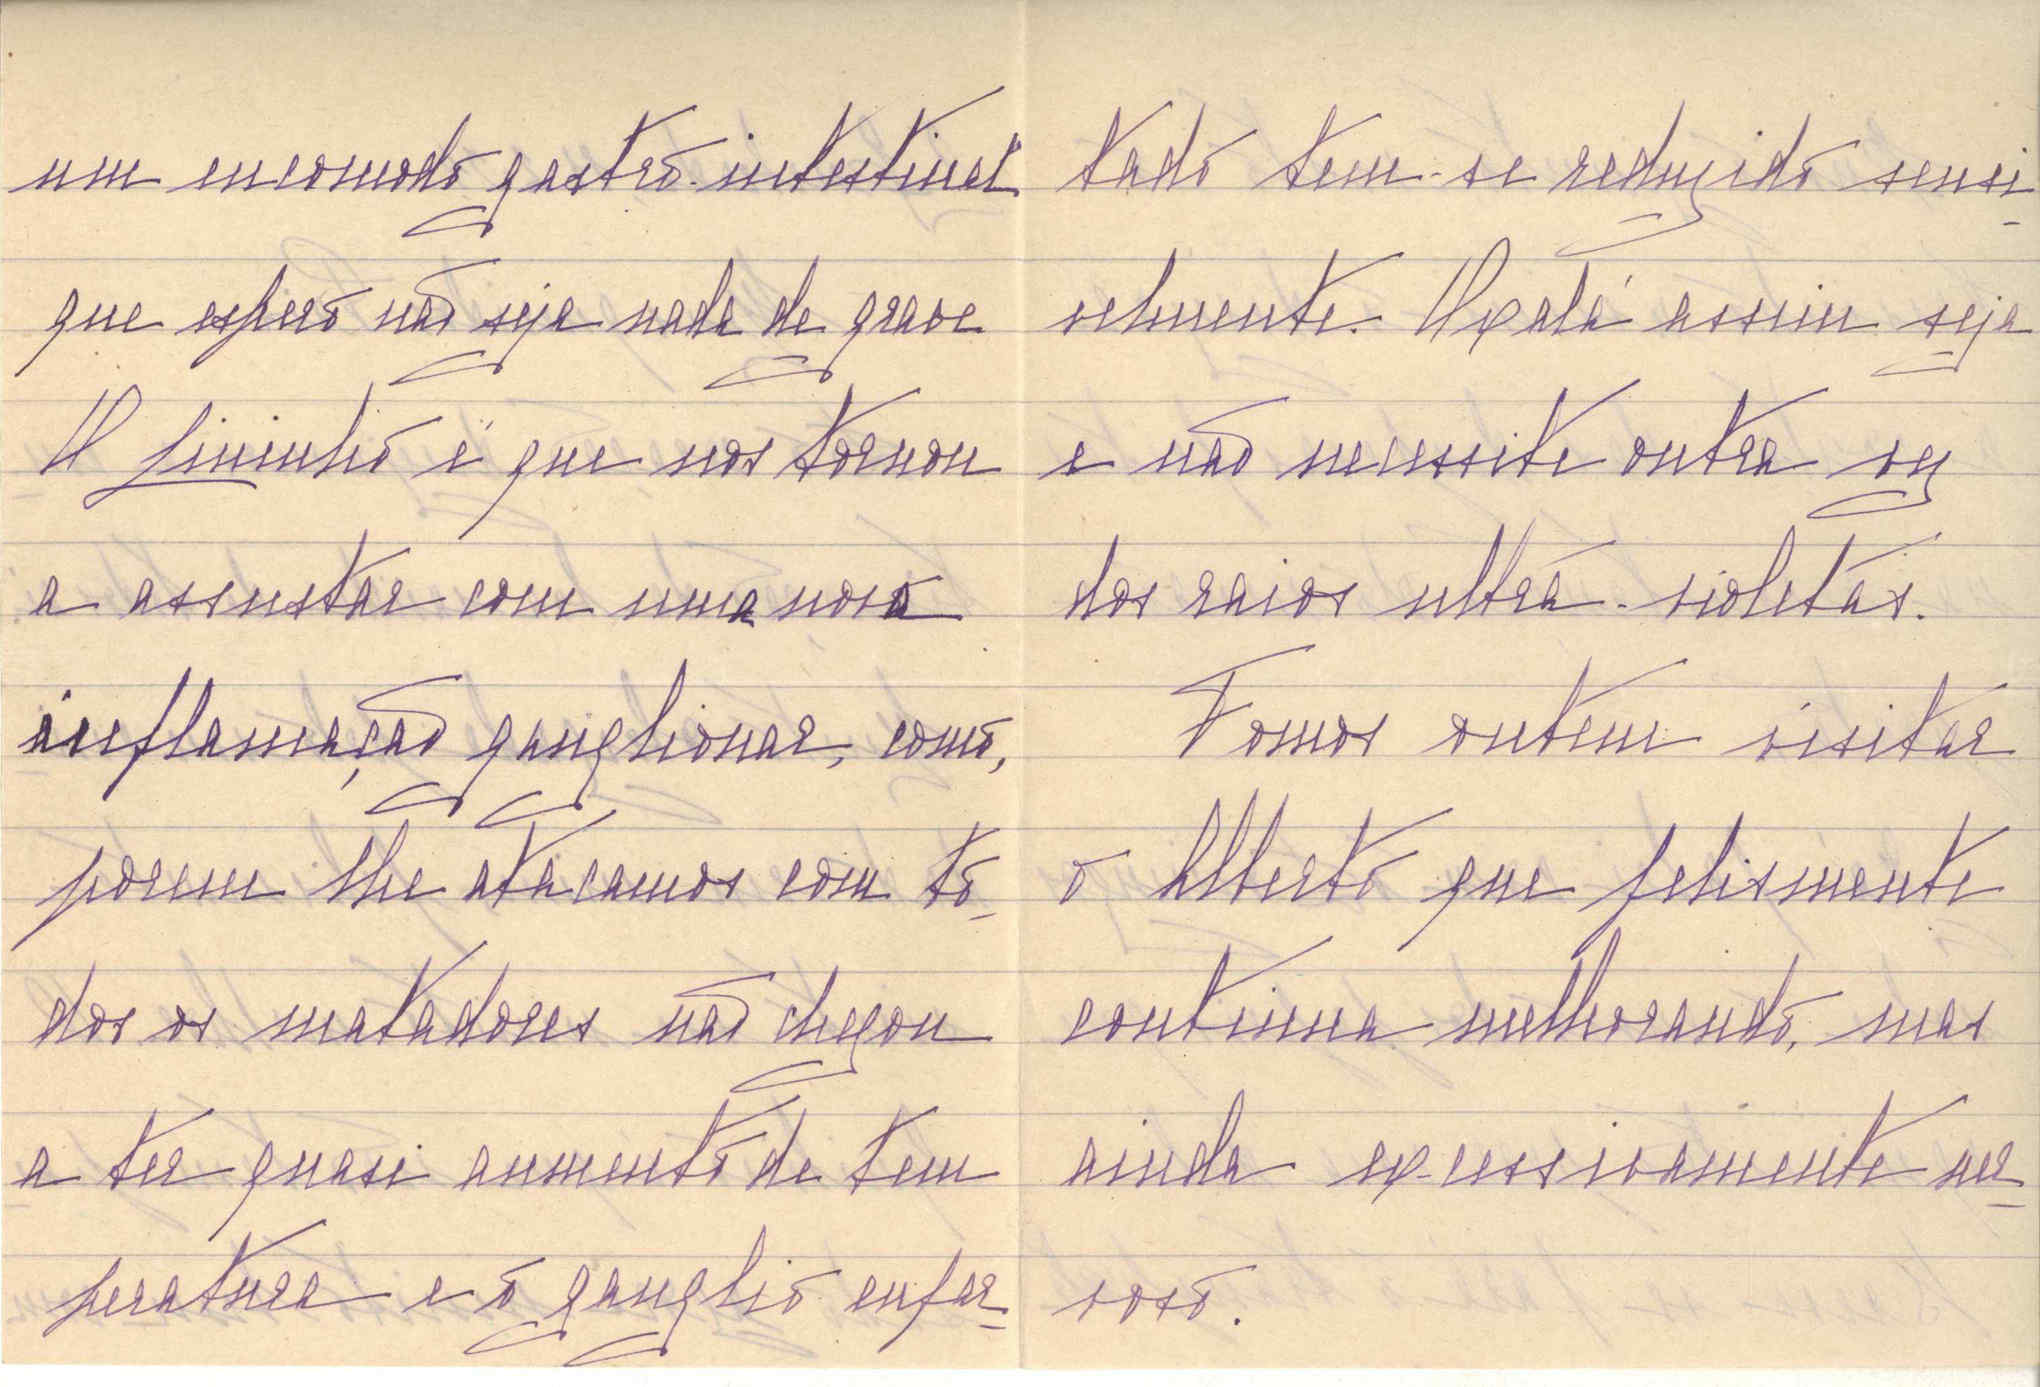 um encomodo gastro-intestinal
que espero não seja nada de grave
O Lininho é que nos tornou
a assustar com uma nova
inflamação ganglionar, como,
porem lhe atacamos com to-
dos os matadores não chegou
a ter quasi aumento de tem
peratura e o ganglio enfar-
tado tem-se reduzido sensi-
velmente. Oxalá assim seja
e não necessite outra vez
dos raios ultra-violetas.
Fomos ontem visitar
o Alberto que felismente
continua melhorando, mas
ainda excessivamente ner-
voso.